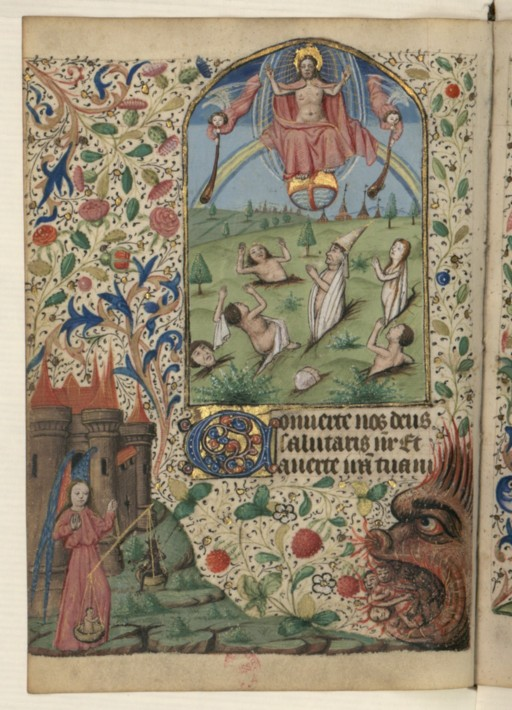 Conuerte nos deus
salutaris nr̄ Et
auerte irā tuam